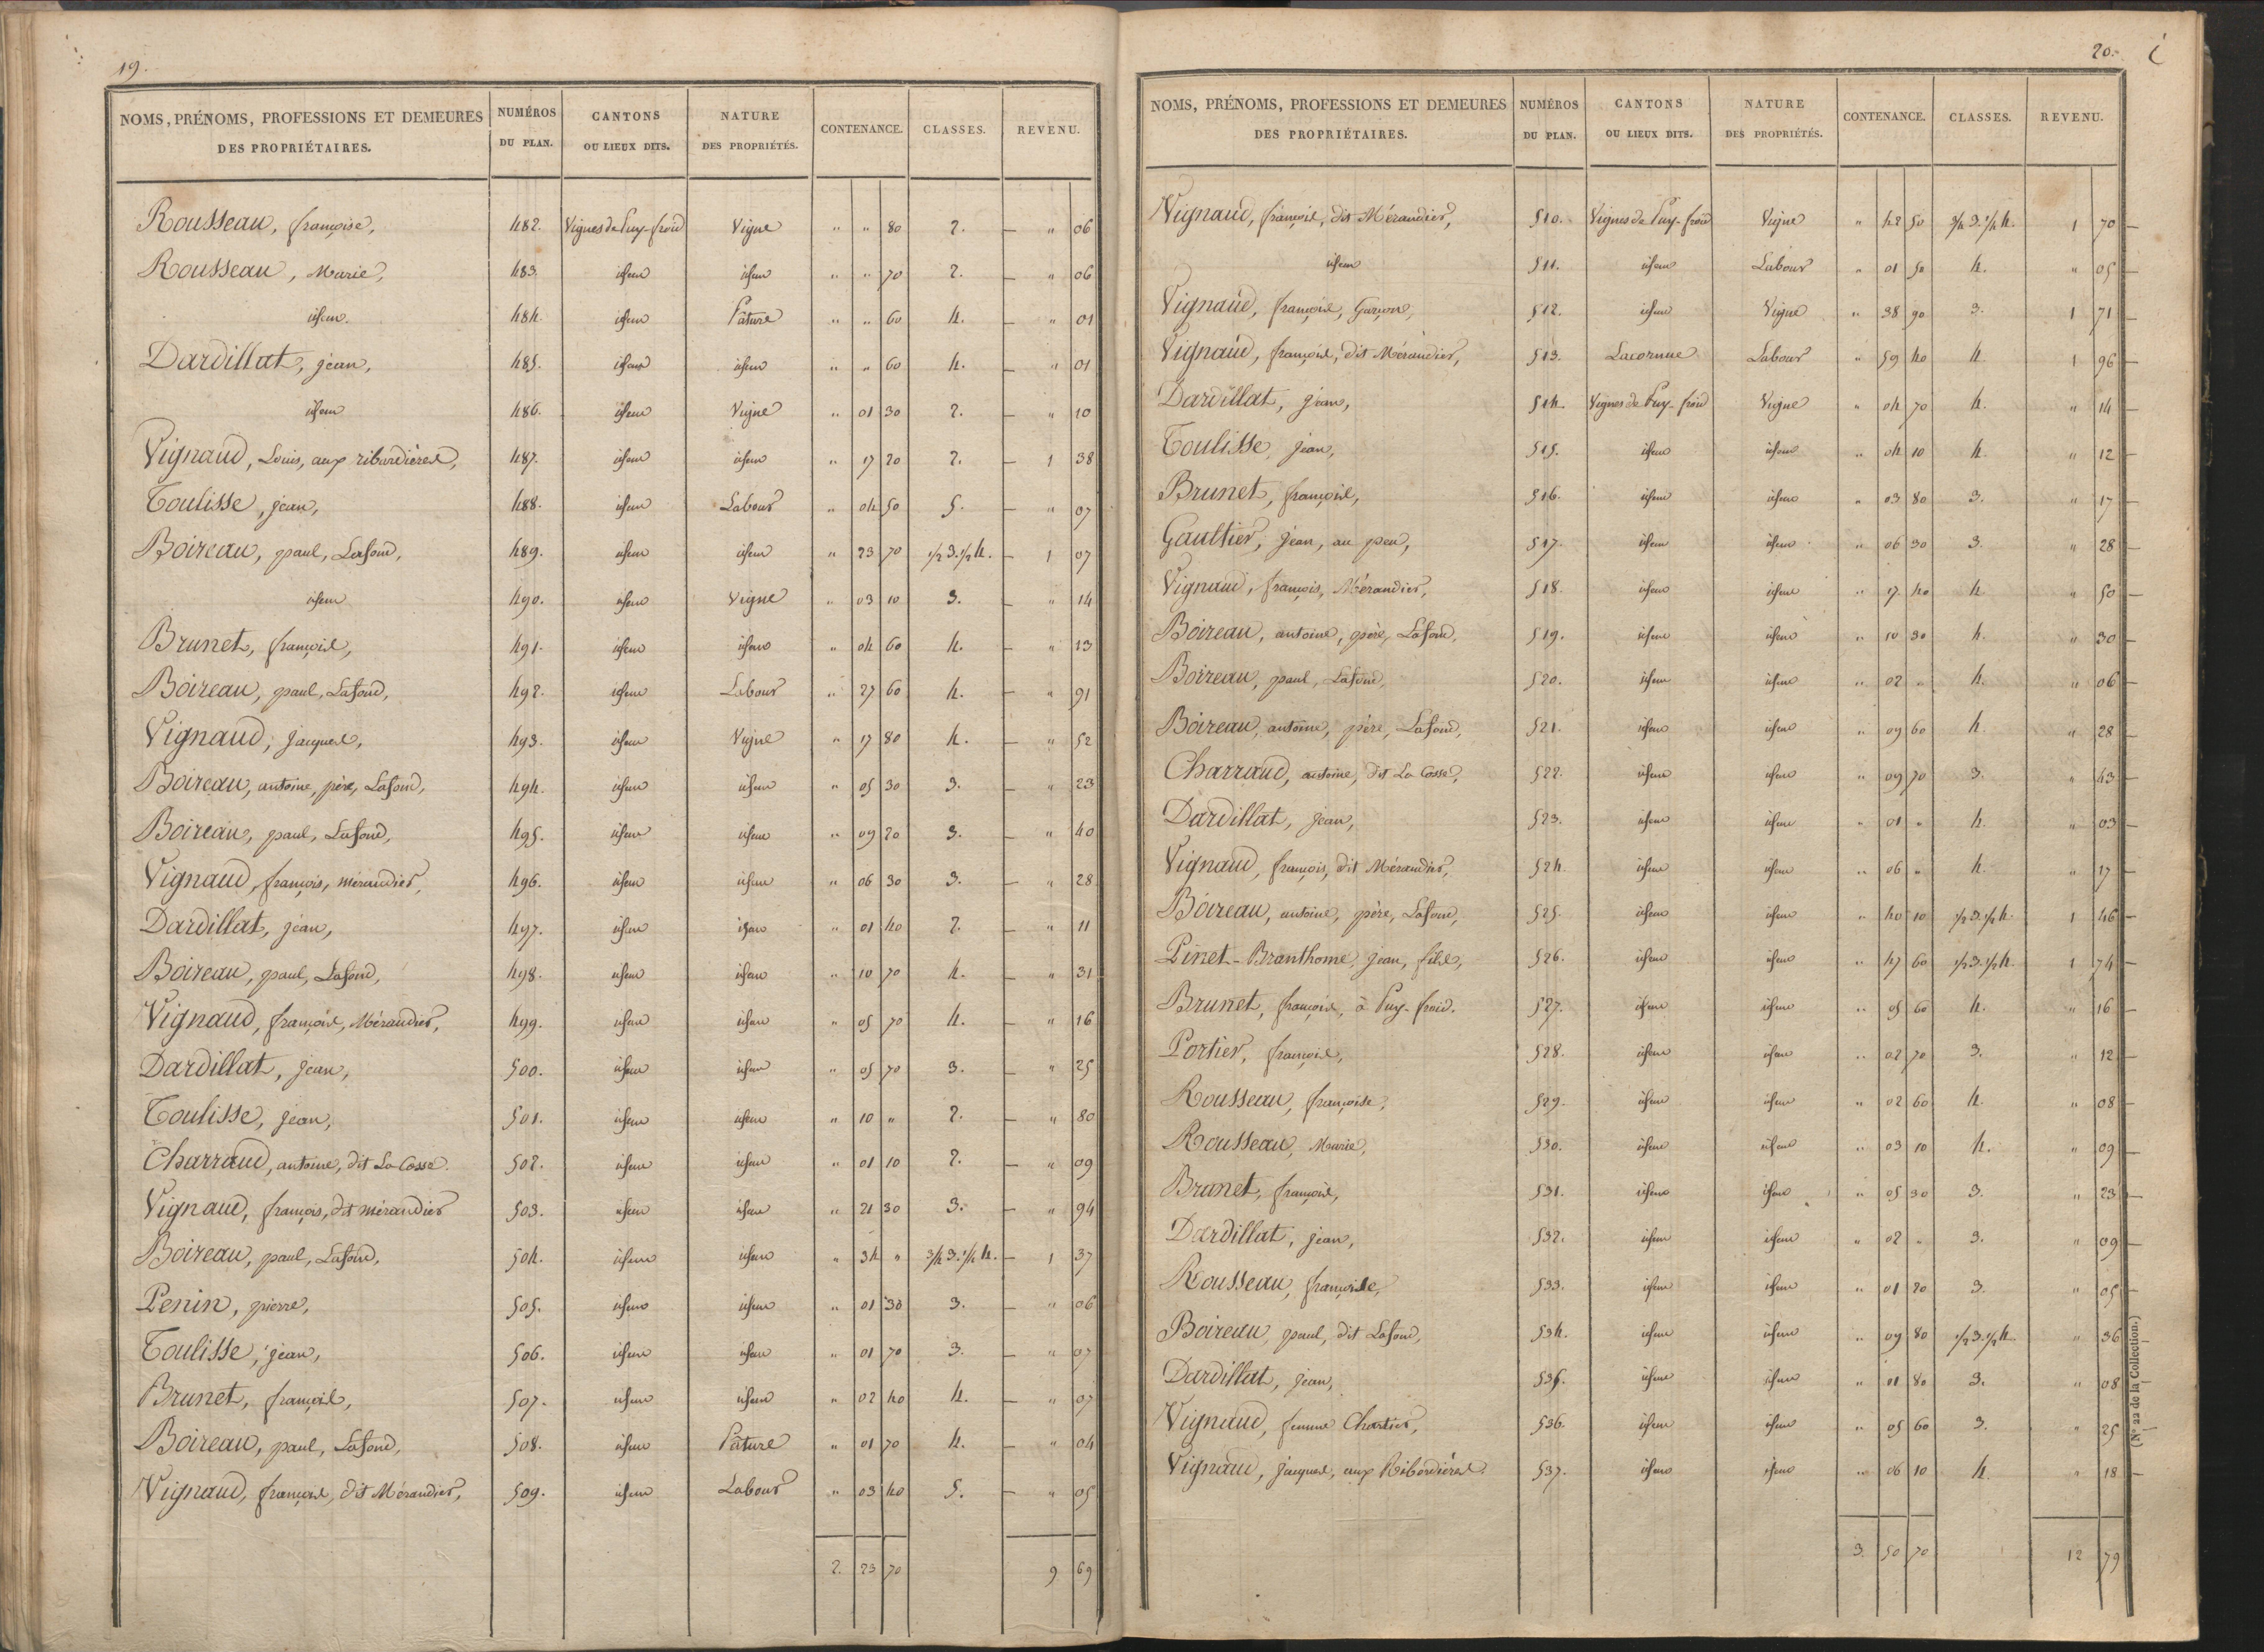 19.
NOMS, PRÉNOMS, PROFESSIONS ET DEMEURES DES PROPRIÉTAIRES. NUMÉROS DU PLAN. CANTONS OU LIEUX DITS. NATURE DES PROPRIÉTÉS. CONTENANCE. CLASSES. REVENU.
Rousseau, françoise, 482. Vignes de Puy-froid Vigne " " 80 2. — " 06
Rousseau, Marie, 483. idem idem " " 70 2. — " 06
idem. 484. idem Pâture " " 60 4. — " 01
Dardillat, jean, 485. idem idem " " 60 4. — " 01
idem 486. idem Vigne " 01 30 2. — " 10
Vignaud, Louis, aux ribardières, 487. idem idem " 17 20 2. — 1 38
Toulisse, jean, 488. idem Labour " 04 50 5. — " 07
Boireau, paul, Lafond, 489. idem idem " 23 70 1/2 3. 1/2 4. — 1 07
idem 490. idem Vigne " 03 10 3. — " 14
Brunet, françois, 491. idem idem " 04 60 4. — " 13
Boireau, paul, Lafond, 492. idem Labour " 27 60 4. — " 91
Vignaud, jacques, 493. idem Vigne " 17 80 4. — " 52
Boireau, antoine, père, Lafond, 494. idem idem " 05 30 3. — " 23
Boireau, paul, Lafond, 495. idem idem " 09 20 3. — " 40
Vignaud, françois, mérandier, 496. idem idem " 06 30 3. — " 28
Dardillat, jean, 497. idem idem " 01 40 2. — " 11
Boireau, paul, Lafond, 498. idem idem " 10 70 4. — " 31
Vignaud, françois, Mérandier, 499. idem idem " 05 70 4. — " 16
Dardillat, jean, 500. idem idem " 05 70 3. — " 25
Toulisse, jean, 501. idem idem " 10 " 2. — " 80
Charraud, antoine, dit La Cosse. 502. idem idem " 01 10 2. — " 09
Vignaud, françois, dit mérandier 503. idem idem " 21 30 3. — " 94
Boireau, paul, Lafond, 504. idem idem " 34 " 3/4 3. 1/4 4. — 1 37
Penin, pierre, 505. idem idem " 01 30 3. — " 06
Toulisse, jean, 506. idem idem " 01 70 3. — " 07
Brunet, françois, 507. idem idem " 02 40 4. — " 07
Boireau, paul, Lafond, 508. idem Pâture " 01 70 4. — " 04
Vignaud, françois, dit Mérandier, 509. idem Labour " 03 40 5. — " 05
2. 23 70 9 69
20.
NOMS, PRÉNOMS, PROFESSIONS ET DEMEURES DES PROPRIÉTAIRES. NUMÉROS DU PLAN. CANTONS OU LIEUX DITS. NATURE DES PROPRIÉTÉS. CONTENANCE. CLASSES. REVENU.
Vignaud, françois, dit Mérandier, 510. Vignes de Puy-froid Vigne " 42 50 3/4 3. 1/4 4. 1 70 —
idem 511. idem Labour " 01 50 4. " 05 —
Vignaud, françois, Garçon, 512. idem Vigne " 38 90 3. 1 71 —
Vignaud, françois, dit Mérandier, 513. Lacornue Labour " 59 40 4. 1 96 —
Dardillat, jean, 514. Vignes de Puy-froid Vigne " 04 70 4. " 14 —
Toulisse, jean, 515. idem idem " 04 10 4. " 12 —
Brunet, françois, 516. idem idem " 03 80 3. " 17 —
Gaultier, jean, au peu, 517. idem idem " 06 30 3. " 28 —
Vignaud, françois, Mérandier, 518. idem idem " 17 40 4. " 50 —
Boireau, antoine, père, Lafond, 519. idem idem " 10 30 4. " 30 —
Boireau, paul, Lafond, 520. idem idem " 02 " 4. " 06 —
Boireau, antoine, père, Lafond, 521. idem idem " 09 60 4. " 28 —
Charraud, antoine, dit La Cosse, 522. idem idem " 09 70 3. " 43 —
Dardillat, jean, 523. idem idem " 01 " 4. " 03 —
Vignaud, françois, dit Mérandier, 524. idem idem " 06 " 4. " 17 —
Boireau, antoine, père, Lafond, 525. idem idem " 40 10 1/2 3. 1/2 4. 1 46 —
Pinet-Branthome, jean, fils, 526. idem idem " 47 60 1/2 3. 1/2 4. 1 74 —
Brunet, françois, à Puy-froid. 527. idem idem " 05 60 4. " 16 —
Portier, françois, 528. idem idem " 02 70 3. " 12 —
Rousseau, françoise, 529. idem idem " 02 60 4. " 08 —
Rousseau, Marie, 530. idem idem " 03 10 4. " 09 —
Brunet, françois, 531. idem idem " 05 30 3. " 23 —
Dardillat, jean, 532. idem idem " 02 " 3. " 09 —
Rousseau, françoise, 533. idem idem " 01 20 3. " 05 —
Boireau, paul, dit Lafond, 534. idem idem " 09 80 1/2 3. 1/2 4. " 36 —
Dardillat, jean, 535. idem idem " 01 80 3. " 08 —
Vignaud, femme Chartier, 536. idem idem " 05 60 3. " 25 —
Vignaud, jacques, aux Ribardières. 537. idem idem " 06 10 4. " 18 —
3. 50 70 12 79
(N° 22 de la Collection.)